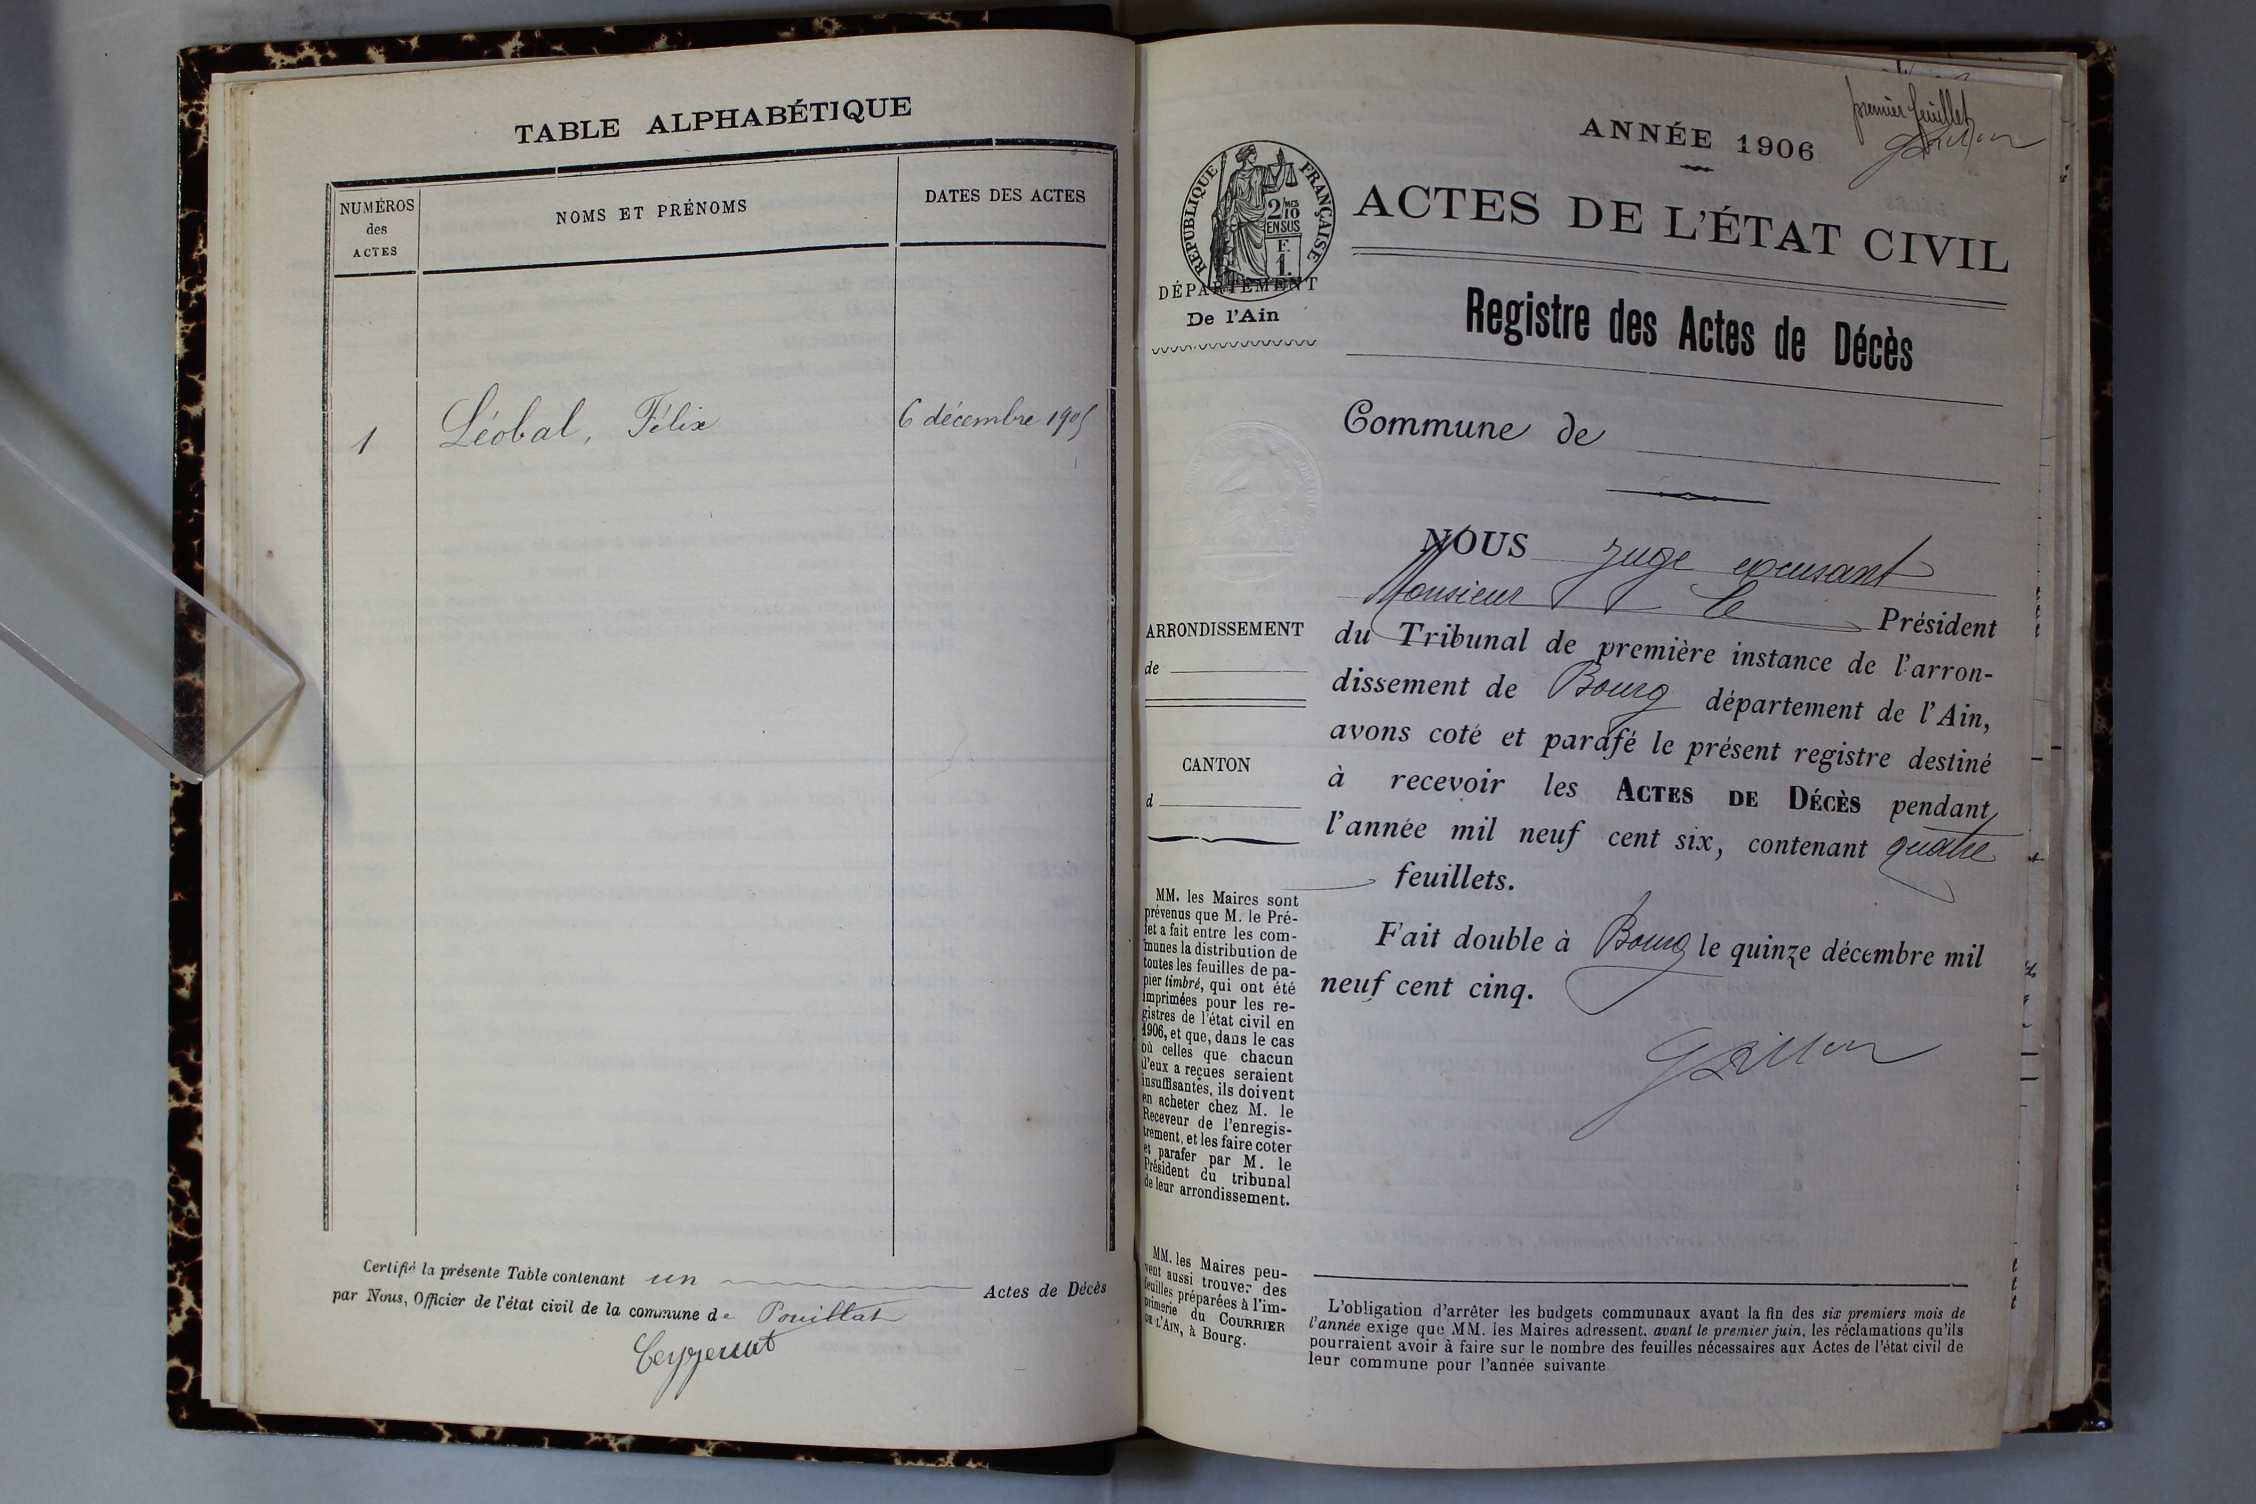 TABLE ALPHABÉTIQUE
NUMÉROS
des
ACTES
NOMS ET PRÉNOMS
DATES DES ACTES
1
Léobal, Félix
6 décembre 1905
Certifié la présente Table contenant un Actes de Décès
par Nous, Officier de l'état civil de la commune de Pouillat
premier feuillet
ANNÉE 1906
RÉPUBLIQUE FRANÇAISE
2/10 MES
EN SUS
F.
1.
ACTES DE L'ÉTAT CIVIL
DÉPARTEMENT
De l'Ain
Registre des Actes de Décès
Commune de
NOUS juge excusant
Monsieur le Président
du Tribunal de première instance de l'arron-
dissement de Bourg département de l'Ain,
avons coté et parafé le présent registre destiné
à recevoir les ACTES DE DÉCÈS pendant
l'année mil neuf cent six, contenant quatre
feuillets.
Fait double à Bourg le quinze décembre mil
neuf cent cinq.
ARRONDISSEMENT
de
CANTON
d
MM. les Maires sont
prévenus que M. le Pré-
fet a fait entre les com-
munes la distribution de
toutes les feuilles de pa-
pier timbré, qui ont été
imprimées pour les re-
gistres de l'état civil en
1906, et que, dans le cas
où celles que chacun
d'eux a reçues seraient
insuffisantes, ils doivent
en acheter chez M. le
Receveur de l'enregis-
trement, et les faire coter
et parafer par M. le
Président du tribunal
de leur arrondissement.
MM. les Maires peu-
vent aussi trouver des
feuilles préparées à l'im-
primerie du COURRIER
DE L'AIN, à Bourg.
L'obligation d'arrêter les budgets communaux avant la fin des six premiers mois de
l'année exige que MM. les Maires adressent, avant le premier juin, les réclamations qu'ils
pourraient avoir à faire sur le nombre des feuilles nécessaires aux Actes de l'état civil de
leur commune pour l'année suivante